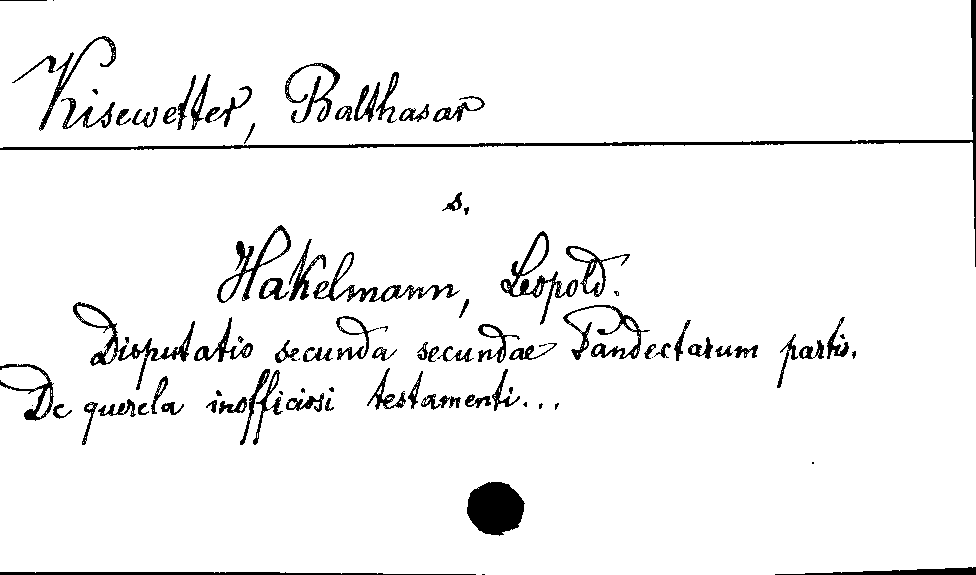 Kisewetter, Balthasar
s.
Hakelmann, Leopold.
Disputatio secunda secundae Pandectarum partis.
De querela inofficiosi testamenti...